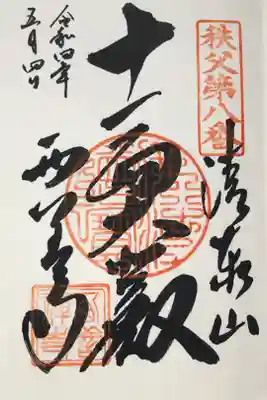 秩父第八番
清泰山
十一面大殿
西善寺
令和四年
五月四日